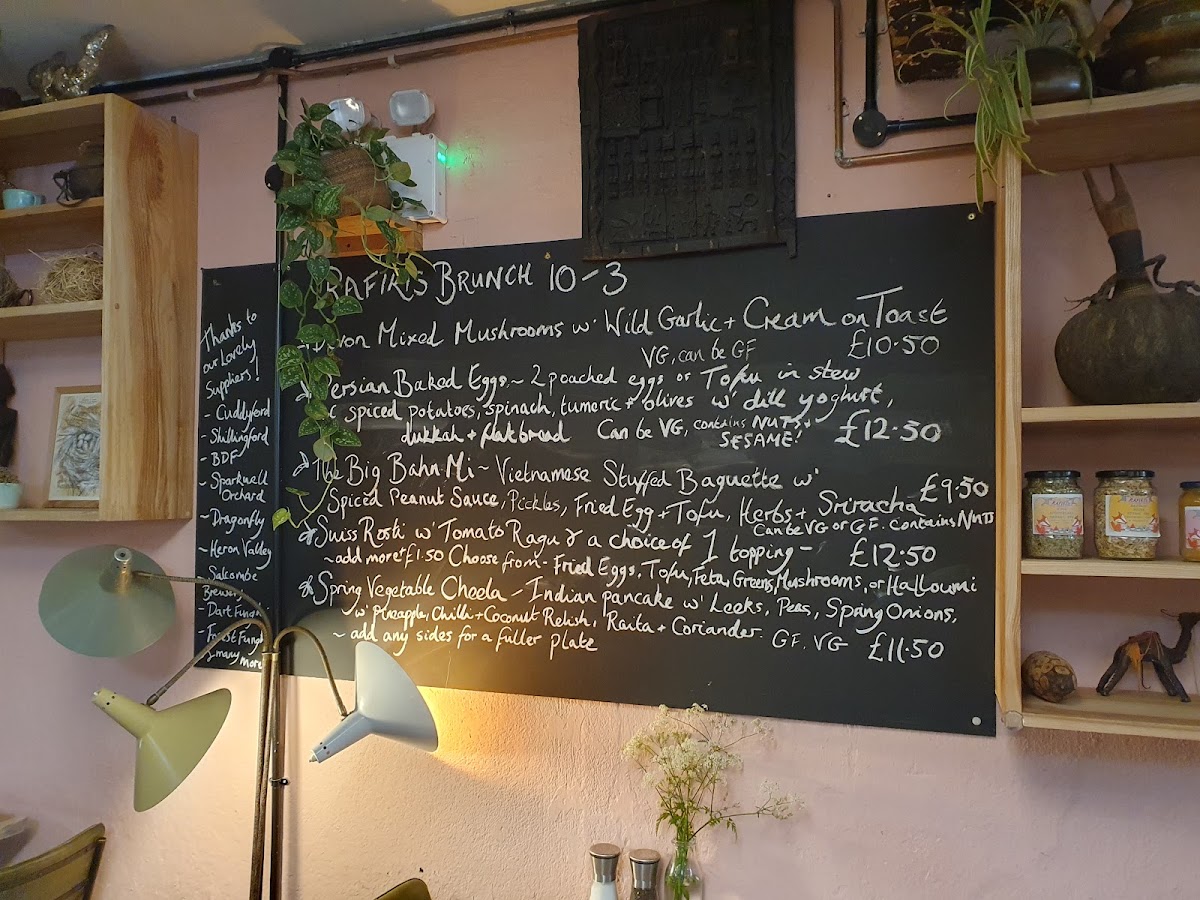 Thanks to
our Lovely
Suppliers!
- Cuddyford
- Shillingford
- BDF
~ Sparkwell
Orchard
~ Dragonfly
~ Heron Valley
- Salcombe
Brewery
- Dart Fungi
- Forest Fungi
& many more
RAFIKIS BRUNCH 10-3
Mixed Mushrooms w' Wild Garlic + Cream on Toast
VG, can be GF £10.50
Persian Baked Eggs ~ 2 poached eggs or Tofu in stew
spiced potatoes, spinach, tumeric + olives w' dill yoghurt,
dukkah + flatbread Can be VG, contains NUTS +
SESAME! £12.50
The Big Bahn Mi ~ Vietnamese Stuffed Baguette w'
Spiced Peanut Sauce, Pickles, Fried Egg + Tofu, Herbs + Sriracha £9.50
Can be VG or GF. Contains NUTS
Suiss Rosti w' Tomato Ragu & a choice of 1 topping - £12.50
~ add more + £1.50 Choose from - Fried Eggs, Tofu, Feta, Greens, Mushrooms, or Halloumi
Spring Vegetable Cheela - Indian pancake w' Leeks, Peas, Spring Onions,
w' Pineapple, Chilli + Coconut Relish, Raita + Coriander. GF. VG £11.50
~ add any sides for a fuller plate